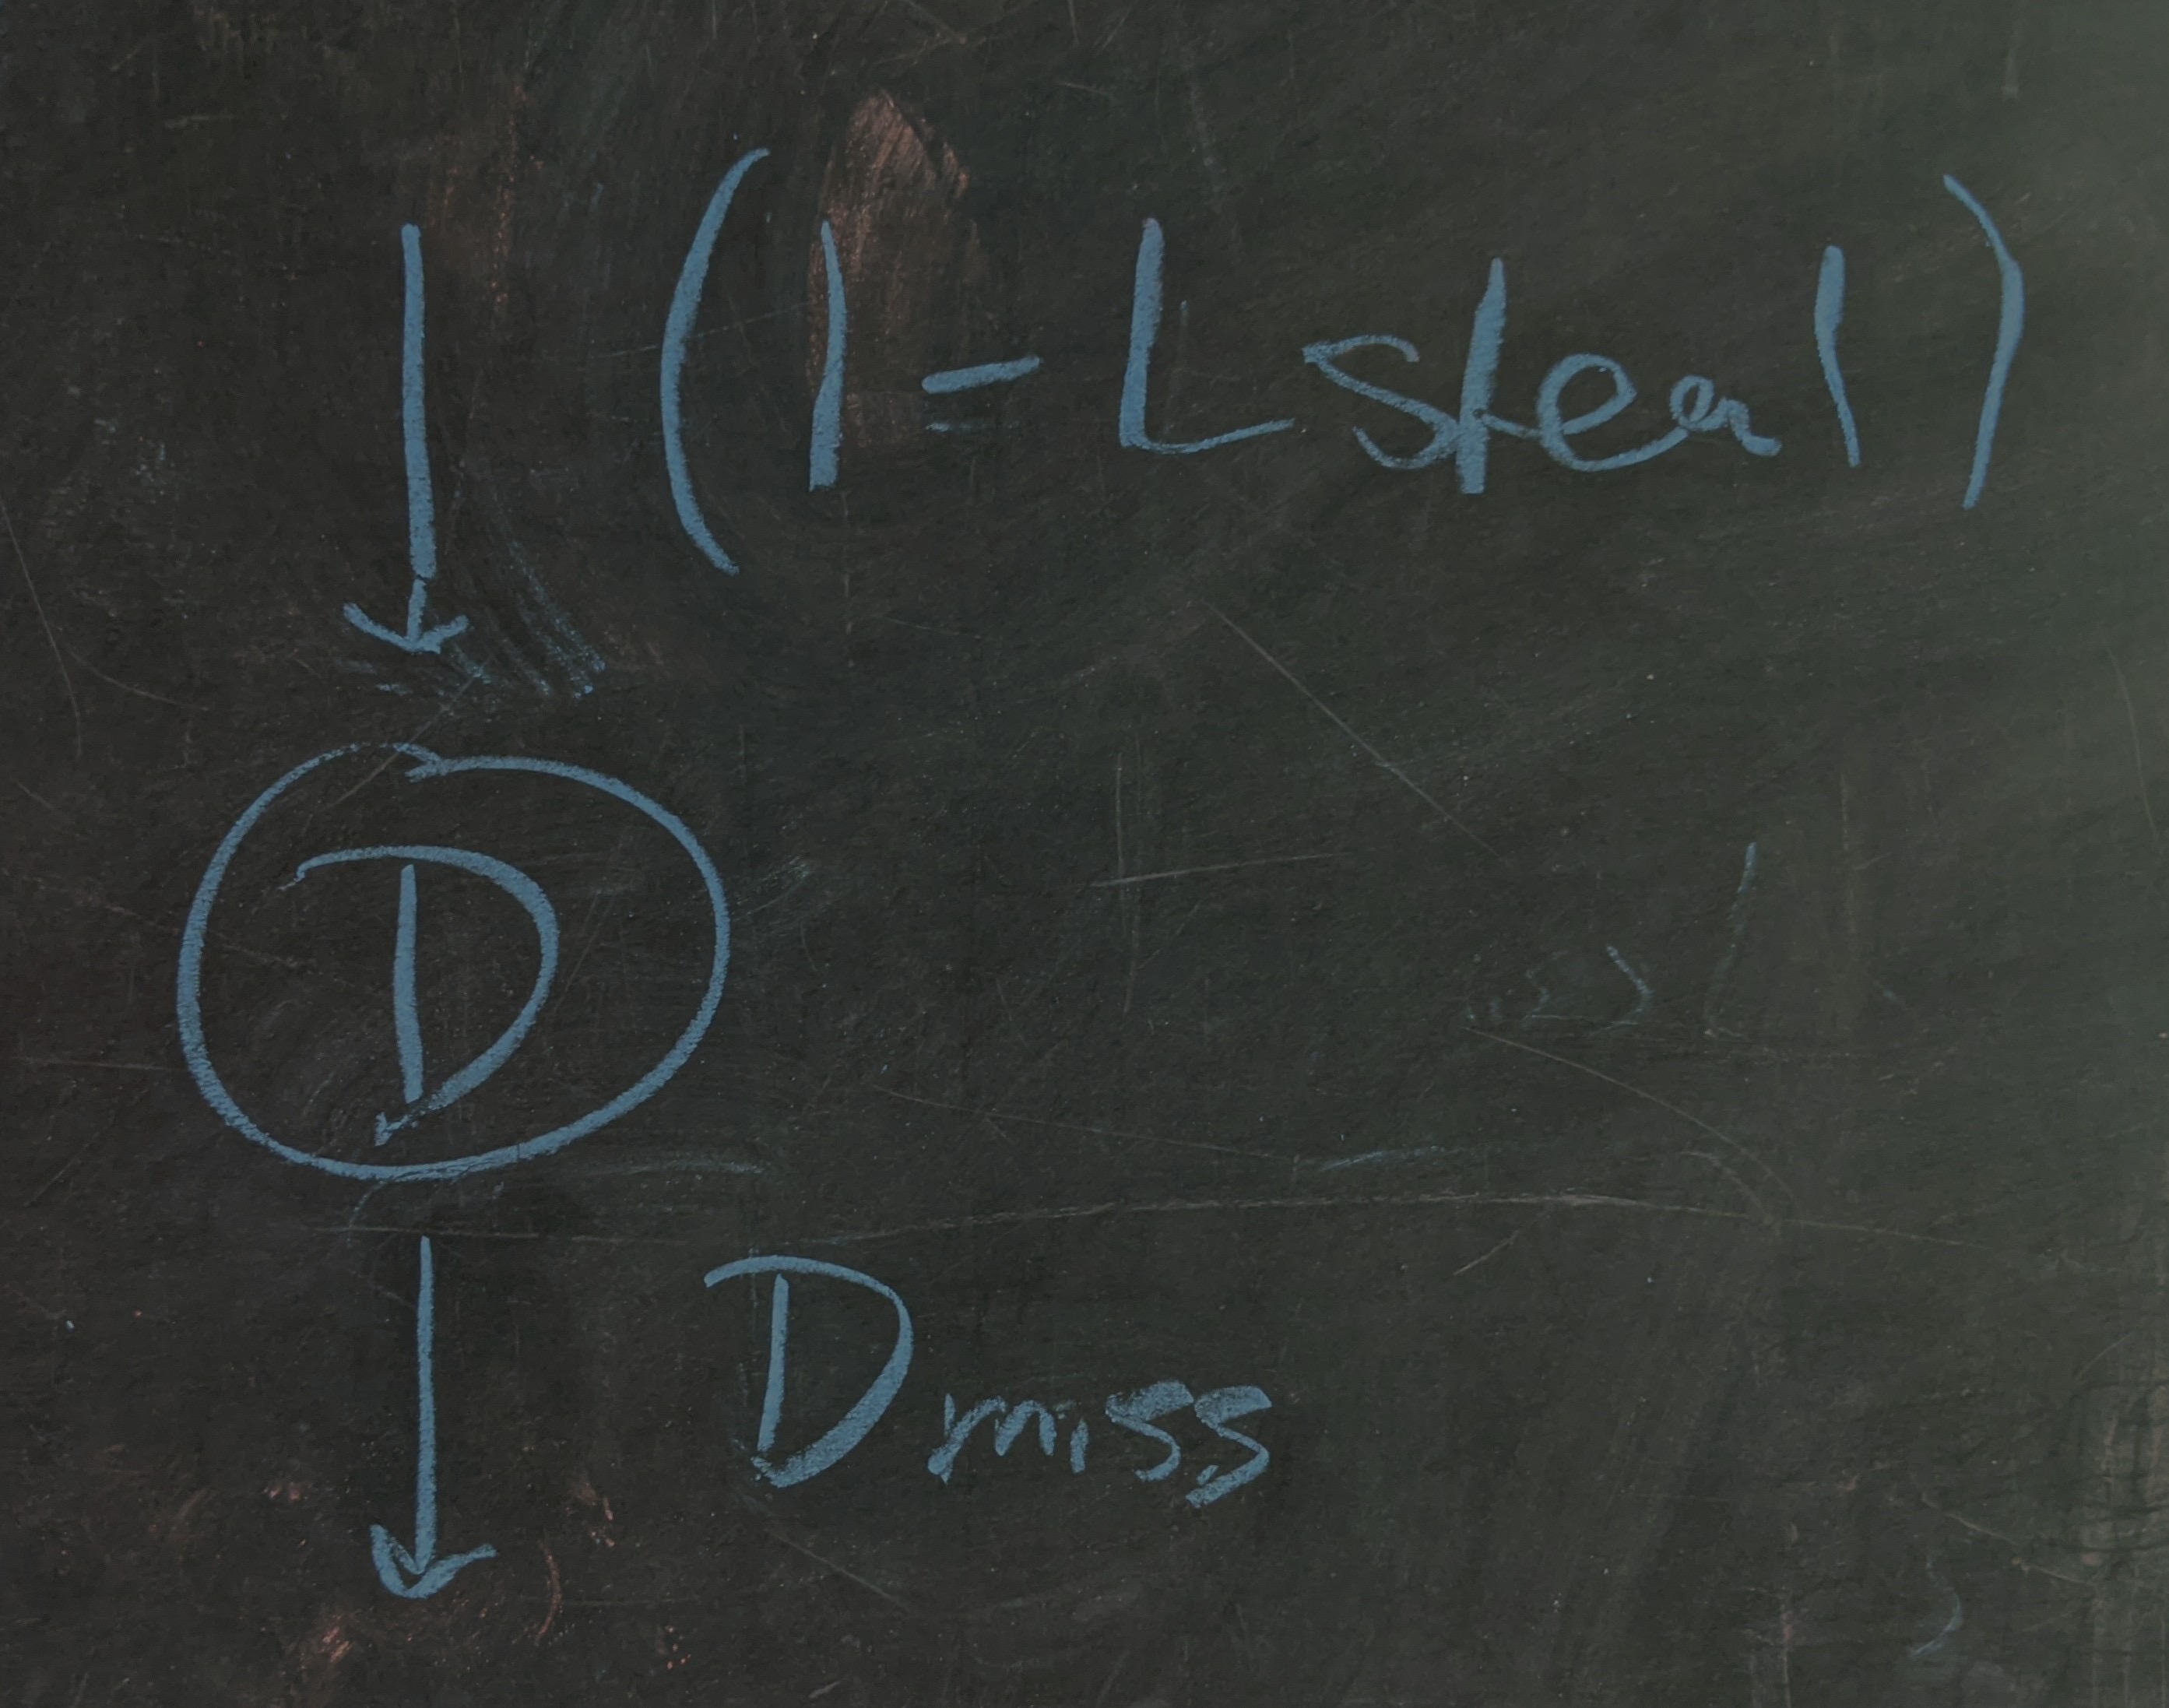 ↓ (1 - Lsteal)
D
↓ Dmiss